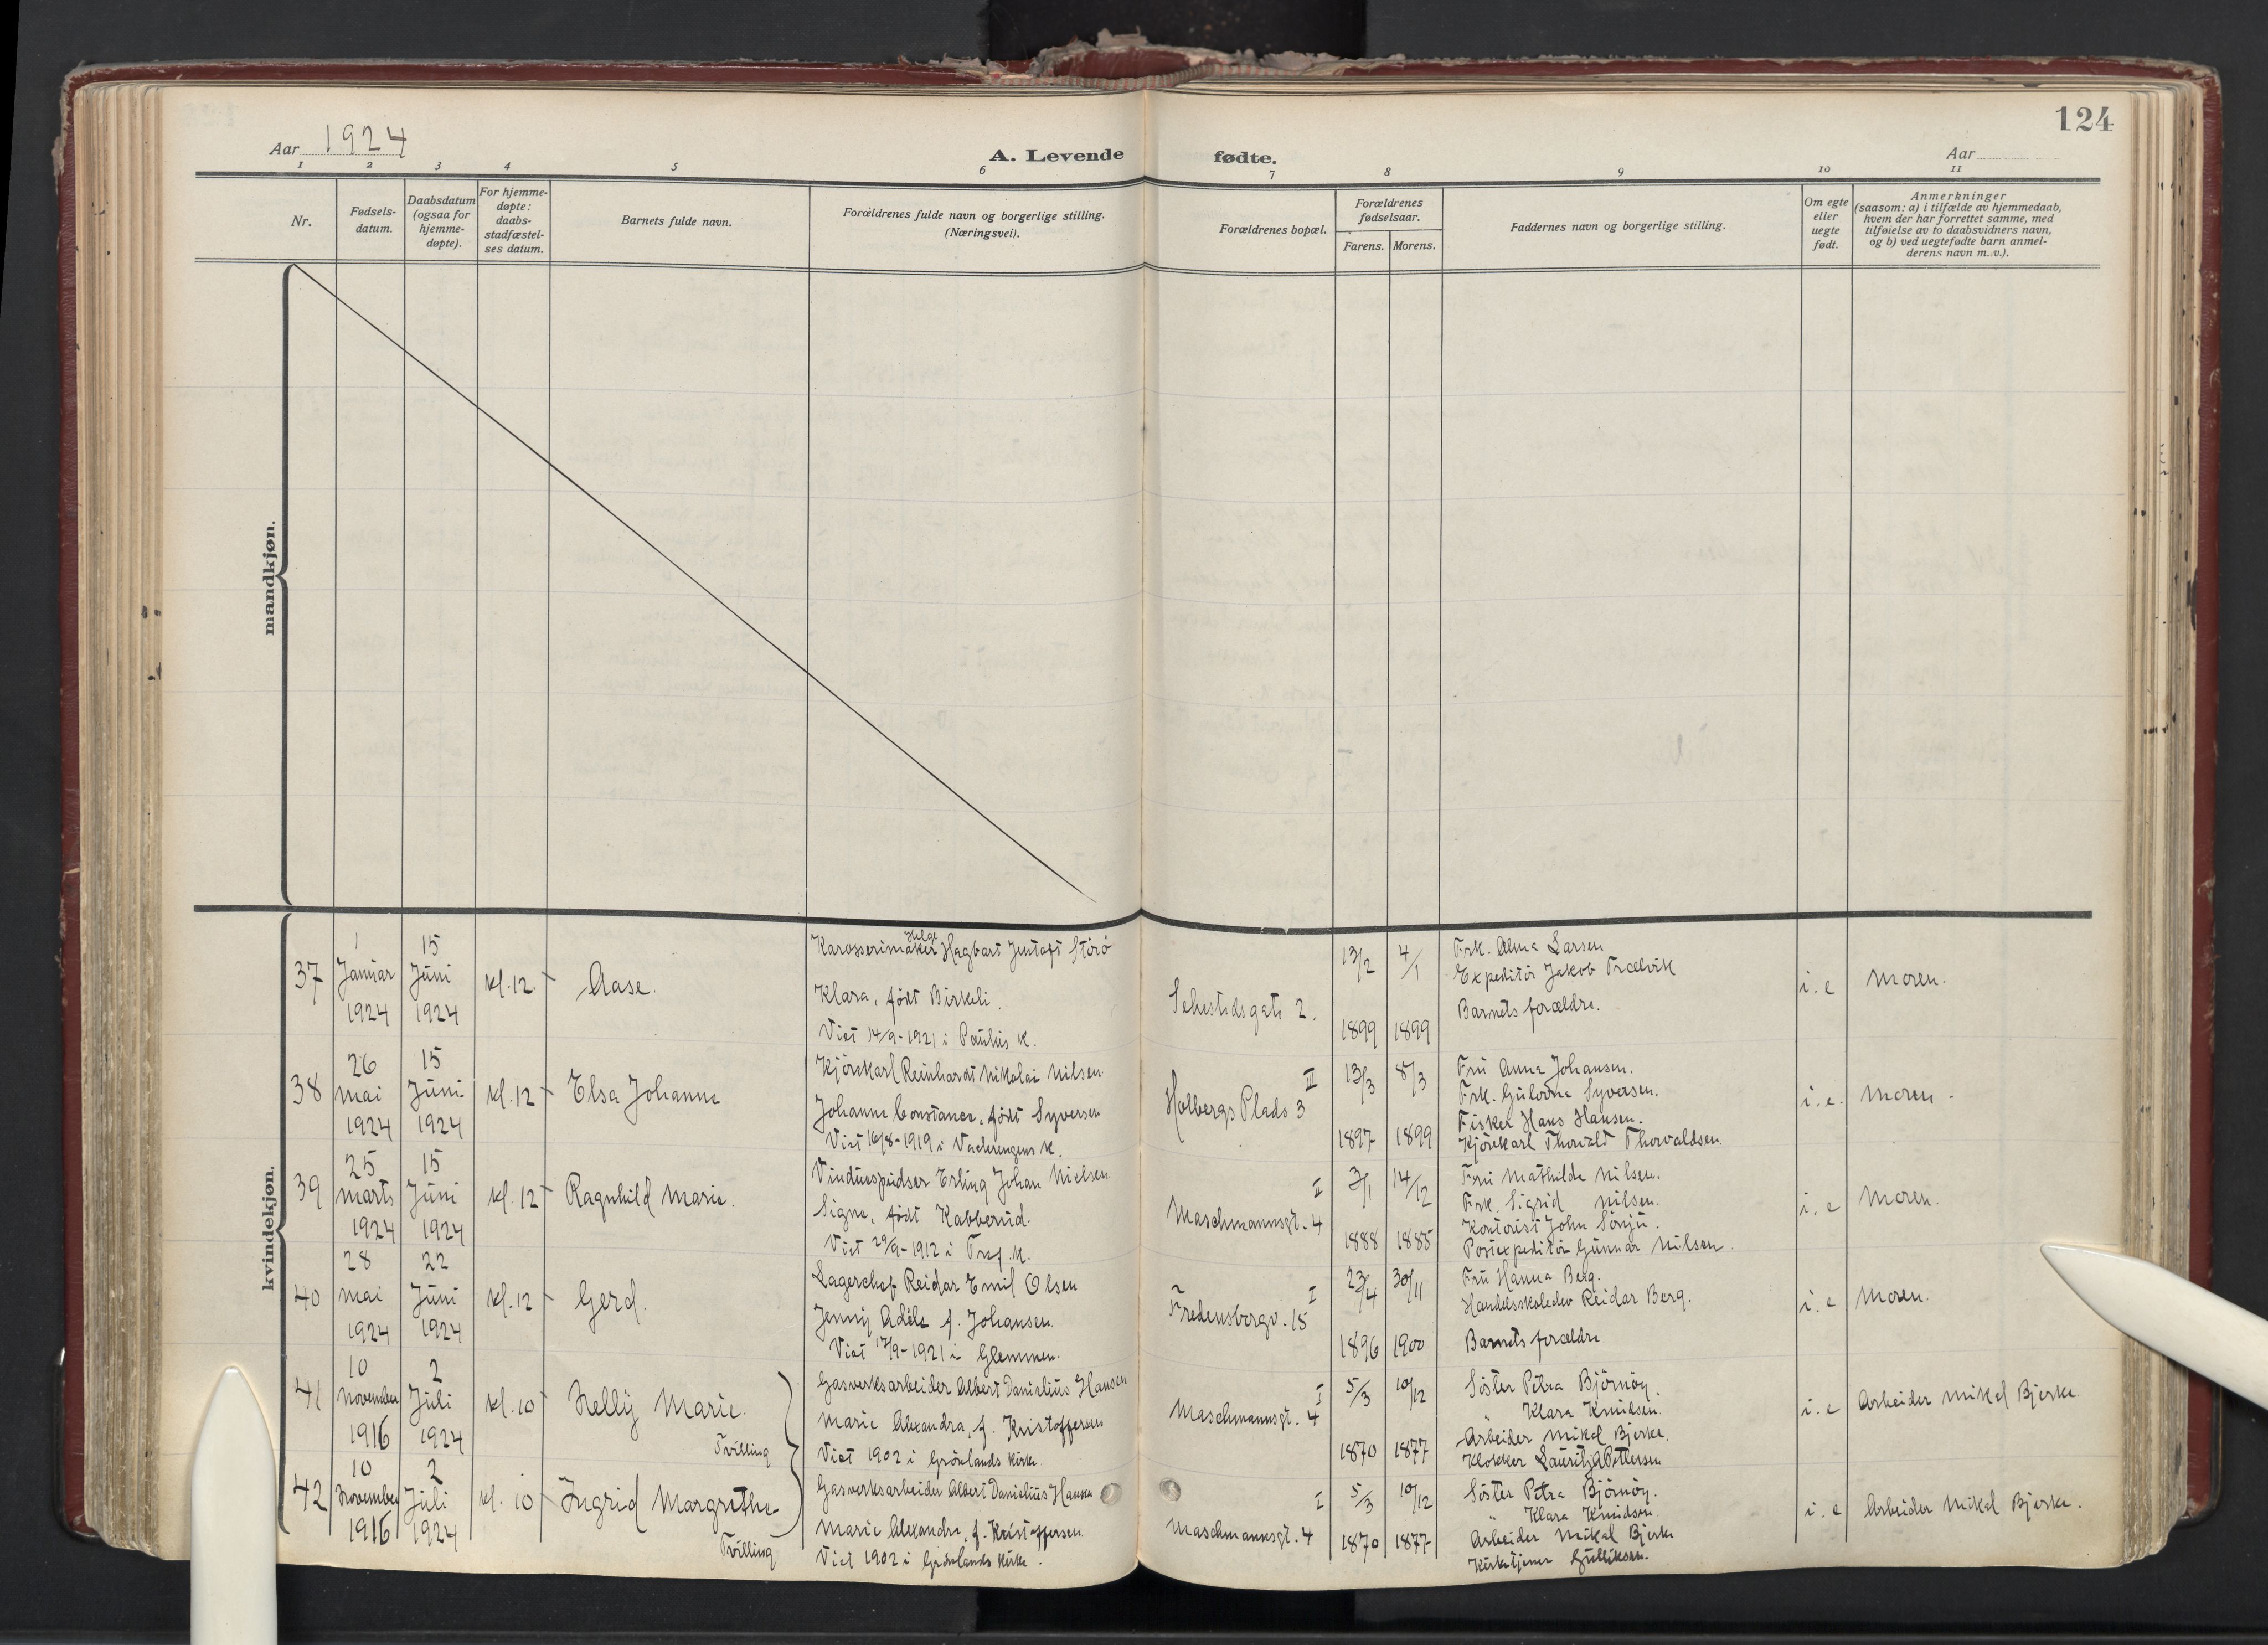 124
Aar 1924
A. Levende fødte.
Aar
1 2 3 4 5 6 7 8 9 10 11
Nr.
Fødsels-
datum.
Daabsdatum
(ogsaa for
hjemme-
døpte).
For hjemme-
døpte:
daabs-
stadfæstel-
ses datum.
Barnets fulde navn.
Forældrenes fulde navn og borgerlige stilling.
(Næringsvei).
Forældrenes bopæl.
Forældrenes
fødselsaar.
Farens. Morens.
Faddernes navn og borgerlige stilling.
Om egte
eller
uegte
født.
Anmerkninger
(saasom: a) i tilfælde av hjemmedaab,
hvem der har forrettet samme, med
tilføielse av to daabsvidners navn,
og b) ved uegtefødte barn anmel-
derens navn m. v.).
mandkjøn.
kvindekjøn.
37
1
Januar
1924
15
Juni
1924
kl. 12
Aase.
Helge
Karosserimaker Hagbart Jentoft Störö
Klara, født Birkeli.
Viet 14/9-1921 i Paulus K.
Sehestedsgate 2.
13/2
1899
4/1
1899
Frk. Alma Larsen
Expeditör Jakob Trælvik
Barnets forældre.
i. e
Moren.
38
26
Mai
1924
15
Juni
1924
kl. 12
Elsa Johanne
Kjörekarl Reinhardt Nikolai Nilsen.
Johanne Constance, født Syversen
Viet 16/8-1919 i Vaalerengens K.
III
Holbergs Plads 3
13/3
1897
8/3
1899
Fru Anna Johansen.
Frk. Gulovna Syversen.
Fisker Hans Hansen.
Kjörekarl Thorvald Thorvaldsen.
i. e.
Moren.
39
25
Marts
1924
15
Juni
1924
kl. 12
Ragnhild Marie.
Vinduespudser Erling Johan Nielsen
Signe, født Kabberud.
Viet 29/9-1912 i Tref. K.
II
Maschmannsgt. 4
3/1
1888
14/12
1885
Fru Mathilde Nilsen.
Frk. Sigrid Nilsen.
Kontorist John Sönju.
Postexpeditör Gunnar Nilsen.
i. e
Moren.
40
28
Mai
1924
22
Juni
1924
kl. 12
Gerd.
Lagerchef Reidar Emil Olsen
Jenny Adéle f. Johansen.
Viet 17/9-1921 i Glemmen.
I
Fredensborgv. 15
23/4
1896
30/11
1900
Fru Hanna Berg.
Handelsskoleelev Reidar Berg.
Barnets forældre
i. e
Moren.
41
10
November
1916
2
Juli
1924
kl. 10
Nelly Marie.
Tvilling
Gasverksarbeider Albert Danielius Hansen
Marie Alexandra, f. Kristoffersen
Viet 1902 i Grönlands Kirke.
I
Maschmannsgt. 4
5/3
1870
10/12
1877
Söster Petra Björnöy.
" Klara Knudsen.
Arbeider Mikal Bjerke.
Klokker Lauritz A Pettersen
i. e
Arbeider Mikal Bjerke
42
10
November
1916
2
Juli
1924
kl. 10
Ingrid Margrethe
Tvilling
Gasverksarbeider Albert Danielius Hansen
Marie Alexandra, f. Kristoffersen
Viet 1902 i Grönlands Kirke.
I
Maschmannsgt. 4
5/3
1870
10/12
1877
Söster Petra Björnöy.
" Klara Knudsen.
Arbeider Mikal Bjerke
Kirketjener Gulliksen.
i. e
Arbeider Mikal Bjerke.